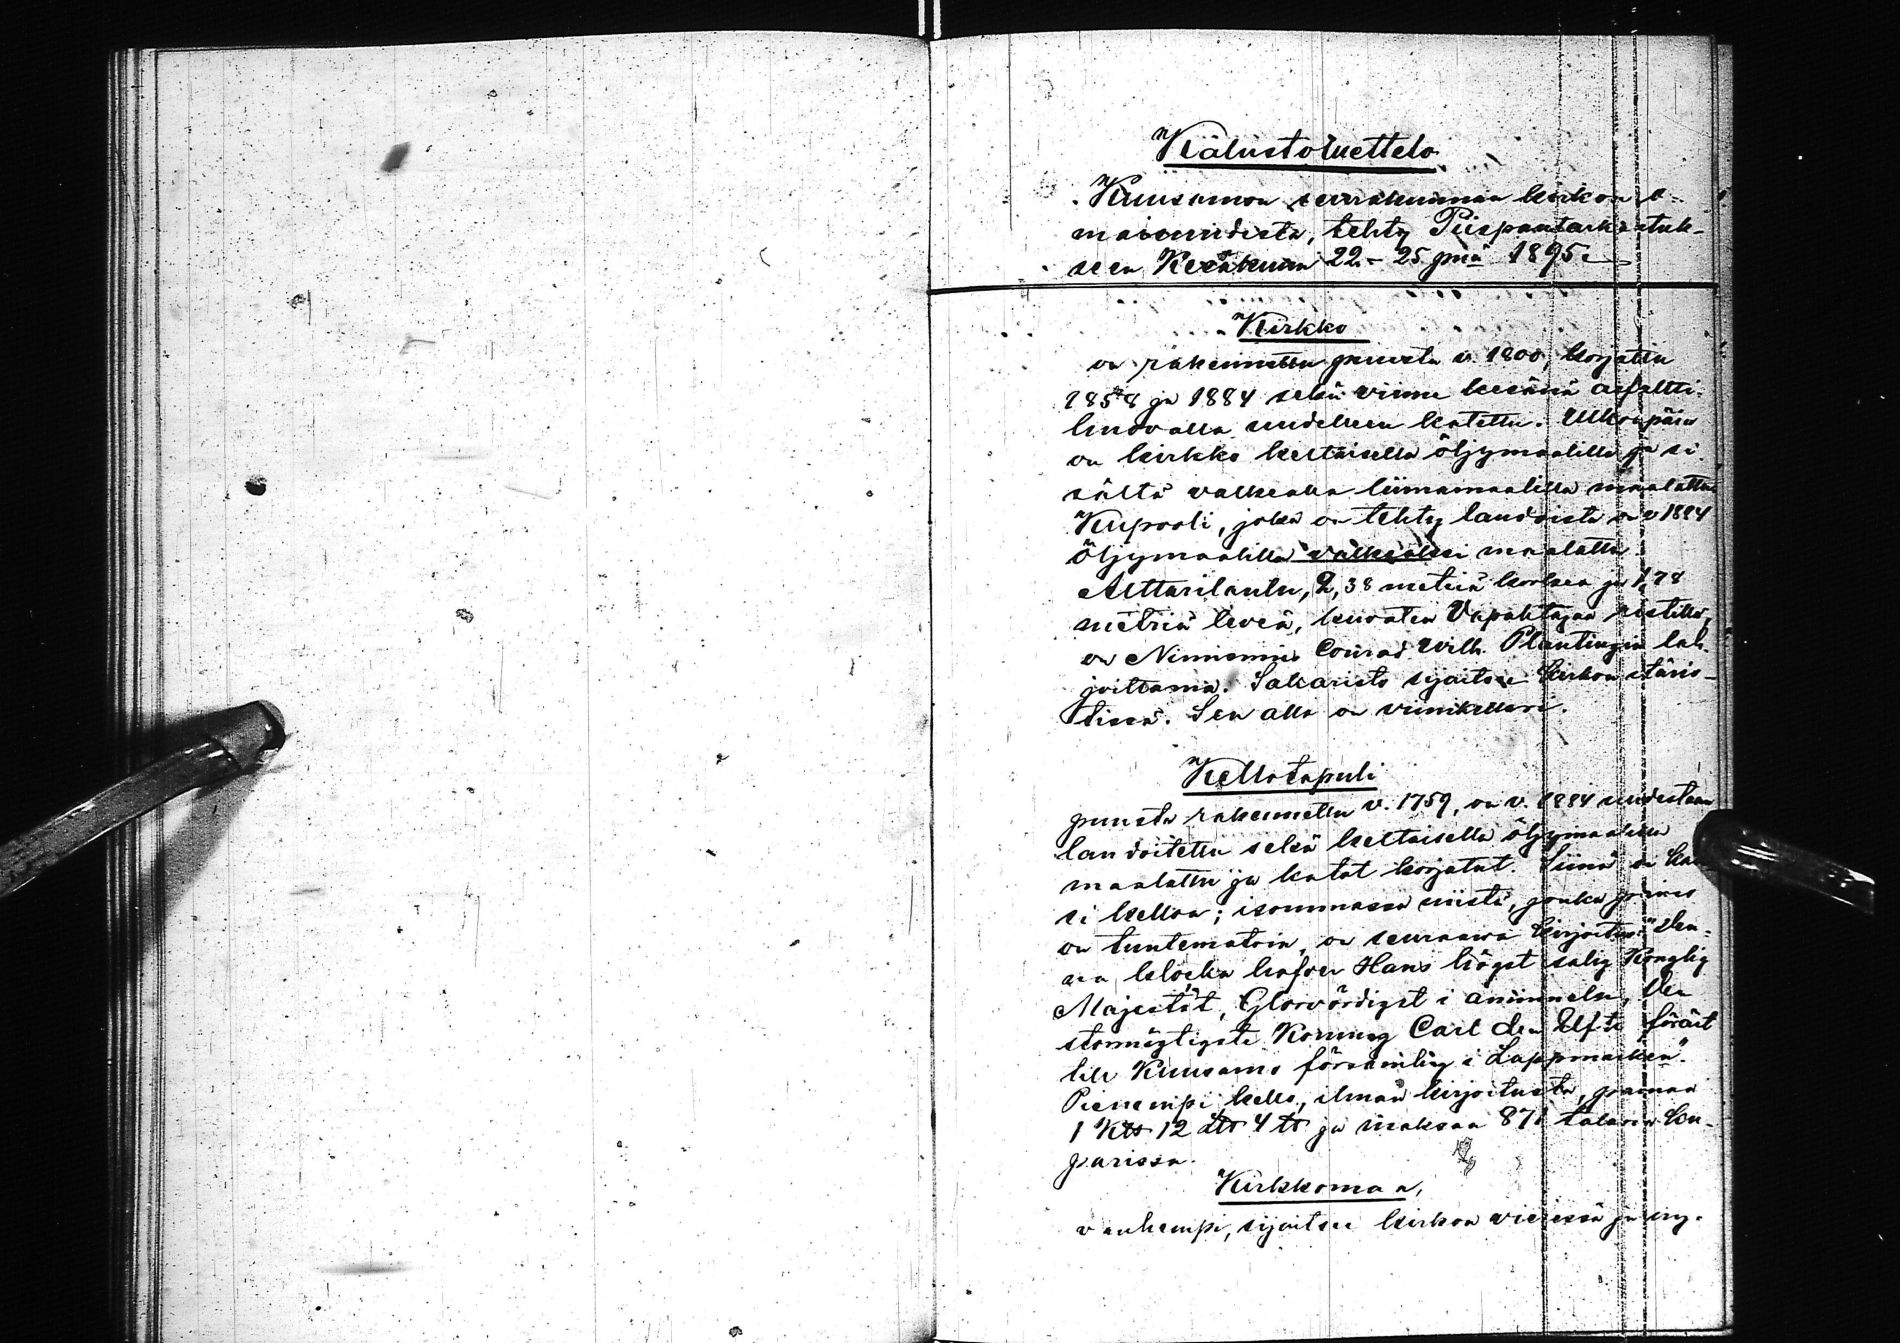 Kalustoluettelo
Kuusamon seurakunnan kirkon o-
maisuudesta, tehty Piispantarkastuk-
seen Kesäkuun 22-25 pnä 1895.
Kirkko
on rakennettu puusta v. 1800, korjattu
1858 ja 1884 sekä viime kesänä asfaltti-
huovalla uudelleen katettu. Ulkoapäin
on kirkko keltaisella öljymaalilla ja si-
sältä valkealla liimamaalilla maalattu.
Kupooli, joka on tehty laudoista on v 1884
öljymaalilla valkeaksi maalattu.
Alttaritaulu, 2,38 metriä korkea ja 1,78
metriä leveä, kuvaten Vapahtajaa ristillä,
on Nimismies Conrad Wilh. Plantingin lah-
joittama. Sakaristo sijaitsee kirkon itäris-
tissä. Sen alla on viinikellari.
Kellotapuli
puusta rakennettu v. 1759, on v. 1884 uudestaan
laudoitettu sekä keltaisella öljymaalilla
maalattu ja katot korjatut. Siinä on kak
si kelloa; isommassa niistä, jonka paino
on tuntematoin, on seuraava kirjoitus: "Den-
na klocka hafver Hans högst salig Konglig
Majestät, Glorvördigst i åminnelse, den
stormägtigste Konung Carl den Elfte förärt
till Kuusamo församling i Lappmarken".
Pienempi kello, ilman kirjoitusta, painaa
1 K℔ 12 L℔ 4 ℔ ja maksaa 871 talaria ku-
parissa.
Kirkkomaa,
vanhempi, sijaitsee kirkon vieressä ja ym-